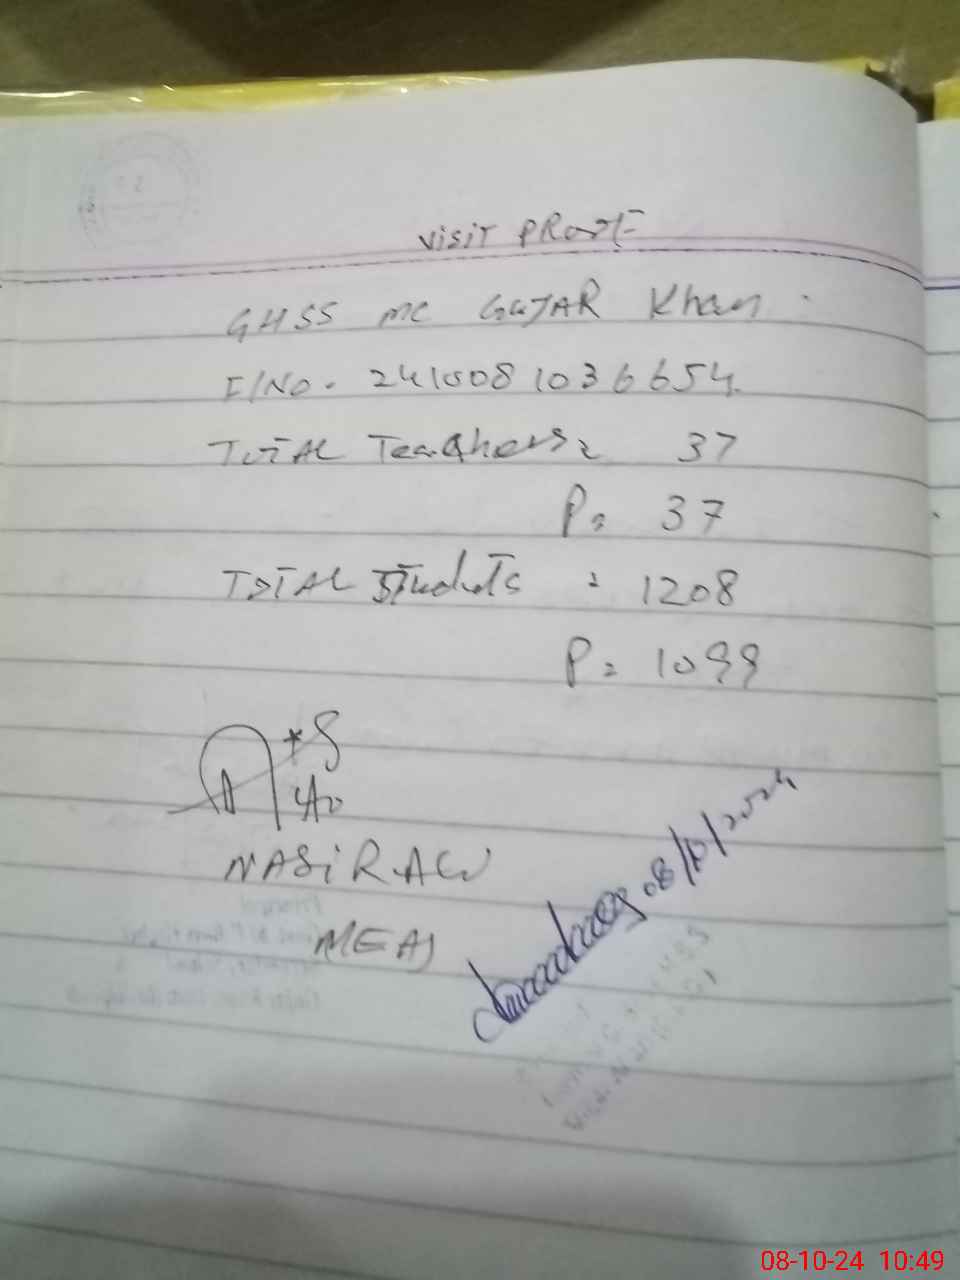 Visit PROOF
GHSS MC GUJAR Khan.
I/No. 241008 1036654
TOTAL Teachers = 37
P = 37
TOTAL Students = 1208
P = 1099
NASIR ALI
MEA
08/10/2024
08-10-24 10:49